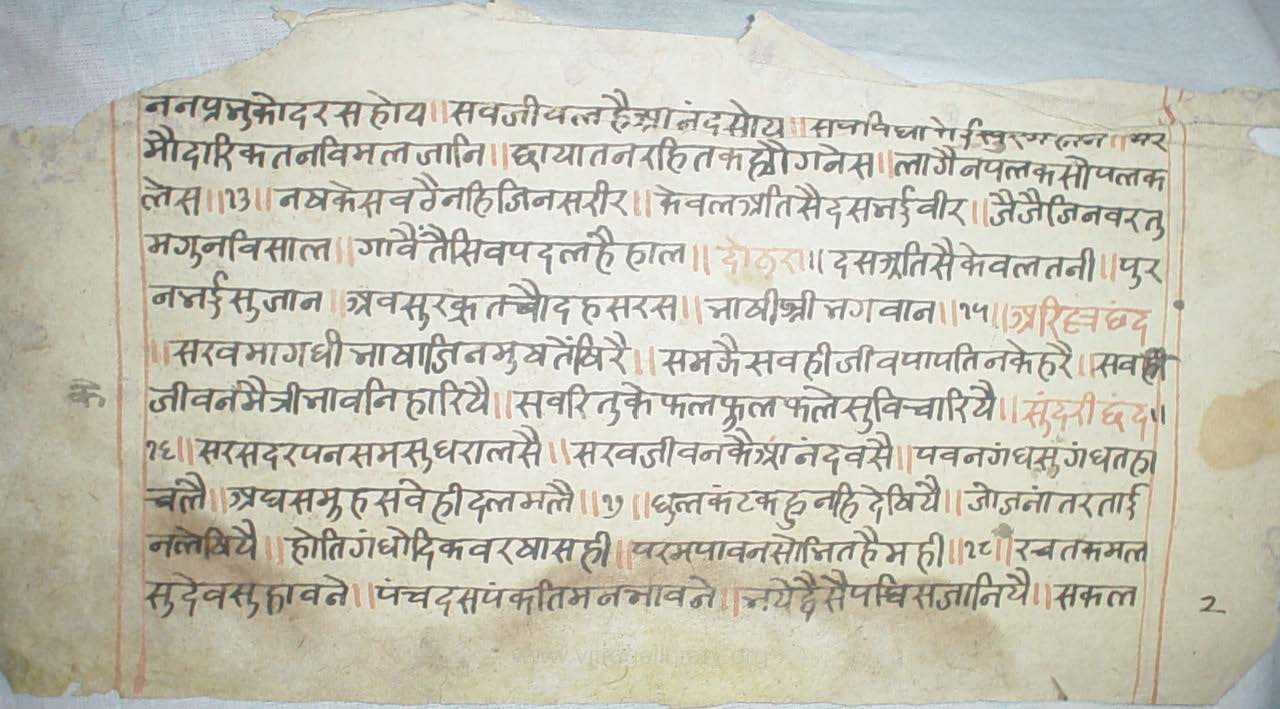 ननप्रभुकोदरसहोय॥सवजीवलहैआनंदसोय॥सवविद्या
औदारिकतनविमलजानि॥छायातनरहितकह्यौगनेस॥लागैनपलकसौपलक
लेस॥१३॥नषकेसवगैनहिजिनसरीर॥केवलअतिसैदसभईवीर॥जैजैजिनवरतु
मगुनविसाल॥गावैंतैसिवपदलहैहाल॥दोहरा॥दसअतिसैकेवलतनी॥पुर
नभईसुजान॥अवसुरकृतचौदहसरस॥भाषीश्रीभगवान॥१५॥अरिल्लछंद
॥सरवमागधीभाषाजिनमुषतैंषिरै॥समकैसवहीजीवपापतिनकेहरै॥सवही
जीवनमैत्रीभावनिहारियै॥सवरितुकेफलफुलफलेसुविचारियै॥सुंदरीछंद॥
१६॥सरसदरपनसमसुधरालसै॥सरवजीवनकैआंनंदवसै॥पवनगंधसुगंधतहा
चलै॥अघसमुहसवेहीदलमलै॥१७॥धुलकंटकहुनहिदेषियै॥जोजनांतरताई
नलेषियै॥होतिगंधोदिकवरषासही॥परमपावनसोभितहैमही॥१८॥रचतकमल
सुदेवसुहावने॥पंचदसपंकतिमनभावने॥भयेदैसैपचिसजानियै॥सकल
2